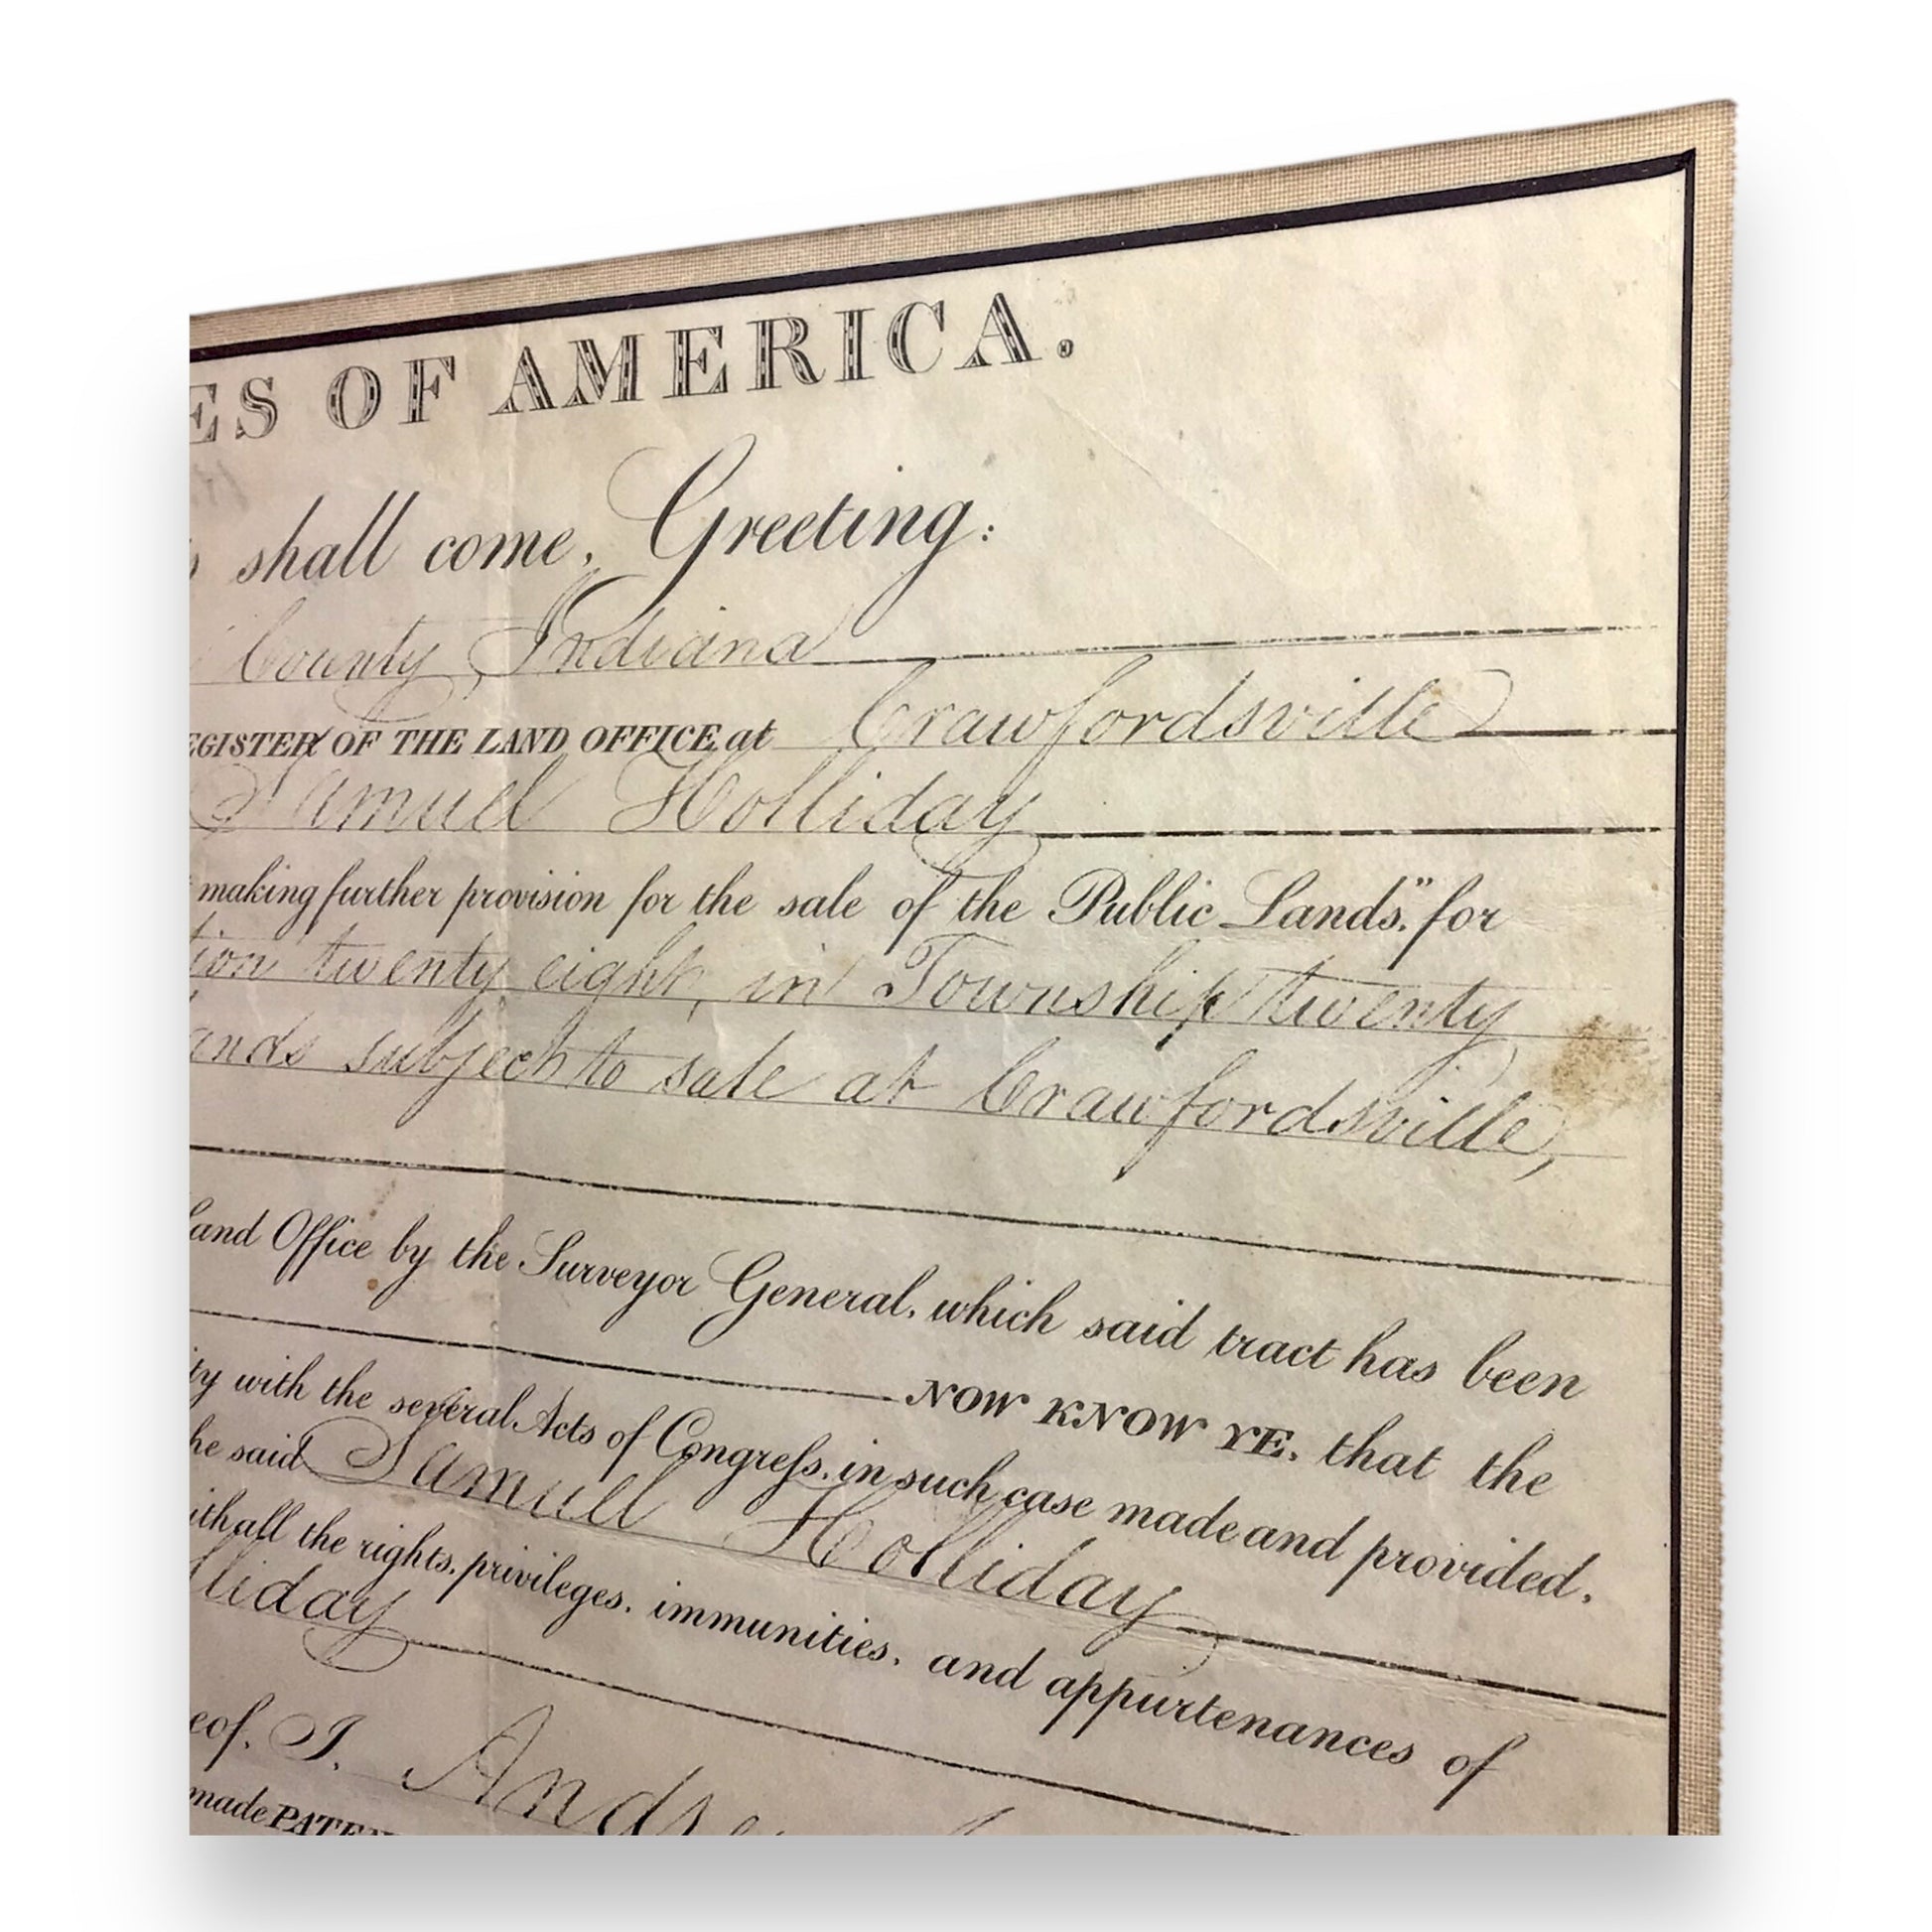 ES OF AMERICA.
shall come, Greeting:
County, Indiana
EGISTER OF THE LAND OFFICE at Crawfordsville
Samuel Holliday
making further provision for the sale of the Public Lands," for
tion twenty eight, in Township twenty
ands subject to sale at Crawfordsville,
Land Office by the Surveyor General, which said tract has been
NOW KNOW YE, that the
ity with the several Acts of Congreſs, in such case made and provided,
he said Samuel Holliday
ith all the rights, privileges, immunities, and appurtenances of
lliday
eof, I,
made PATEN